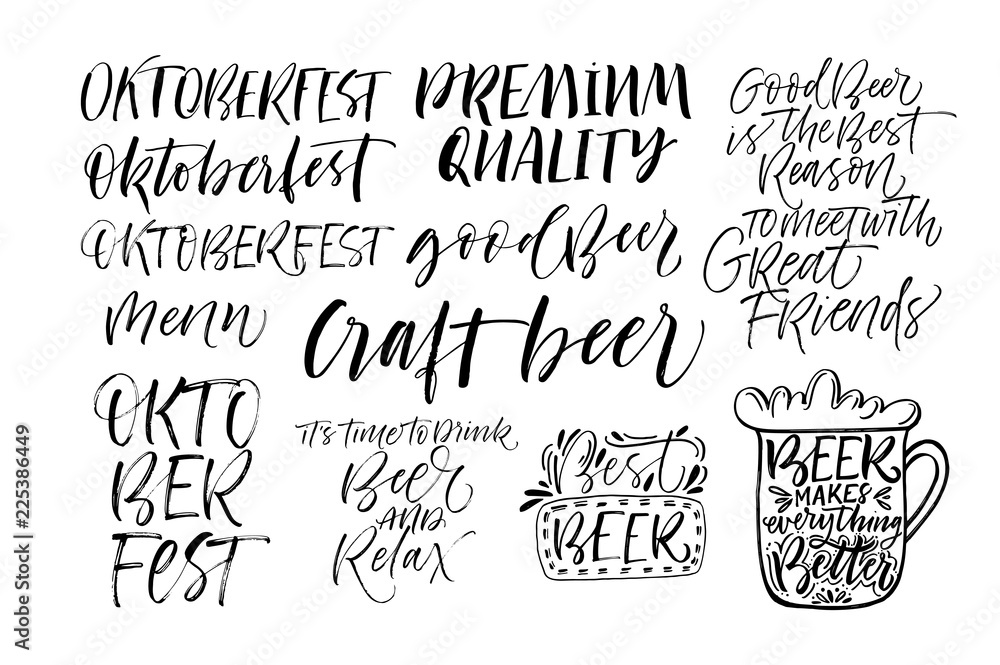 OKTOBERFEST
Oktoberfest
OKTOBERFEST
menu
OKTO
BER
FEST
PREMIUM
QUALITY
good Beer
Craft beer
it's time to Drink
Beer
AND
Relax
Best
BEER
Good Beer
is the Best
Reason
to meet with
GReat
FRiends
BEER
MAKES
everything
Better
Adobe Stock | #225386449